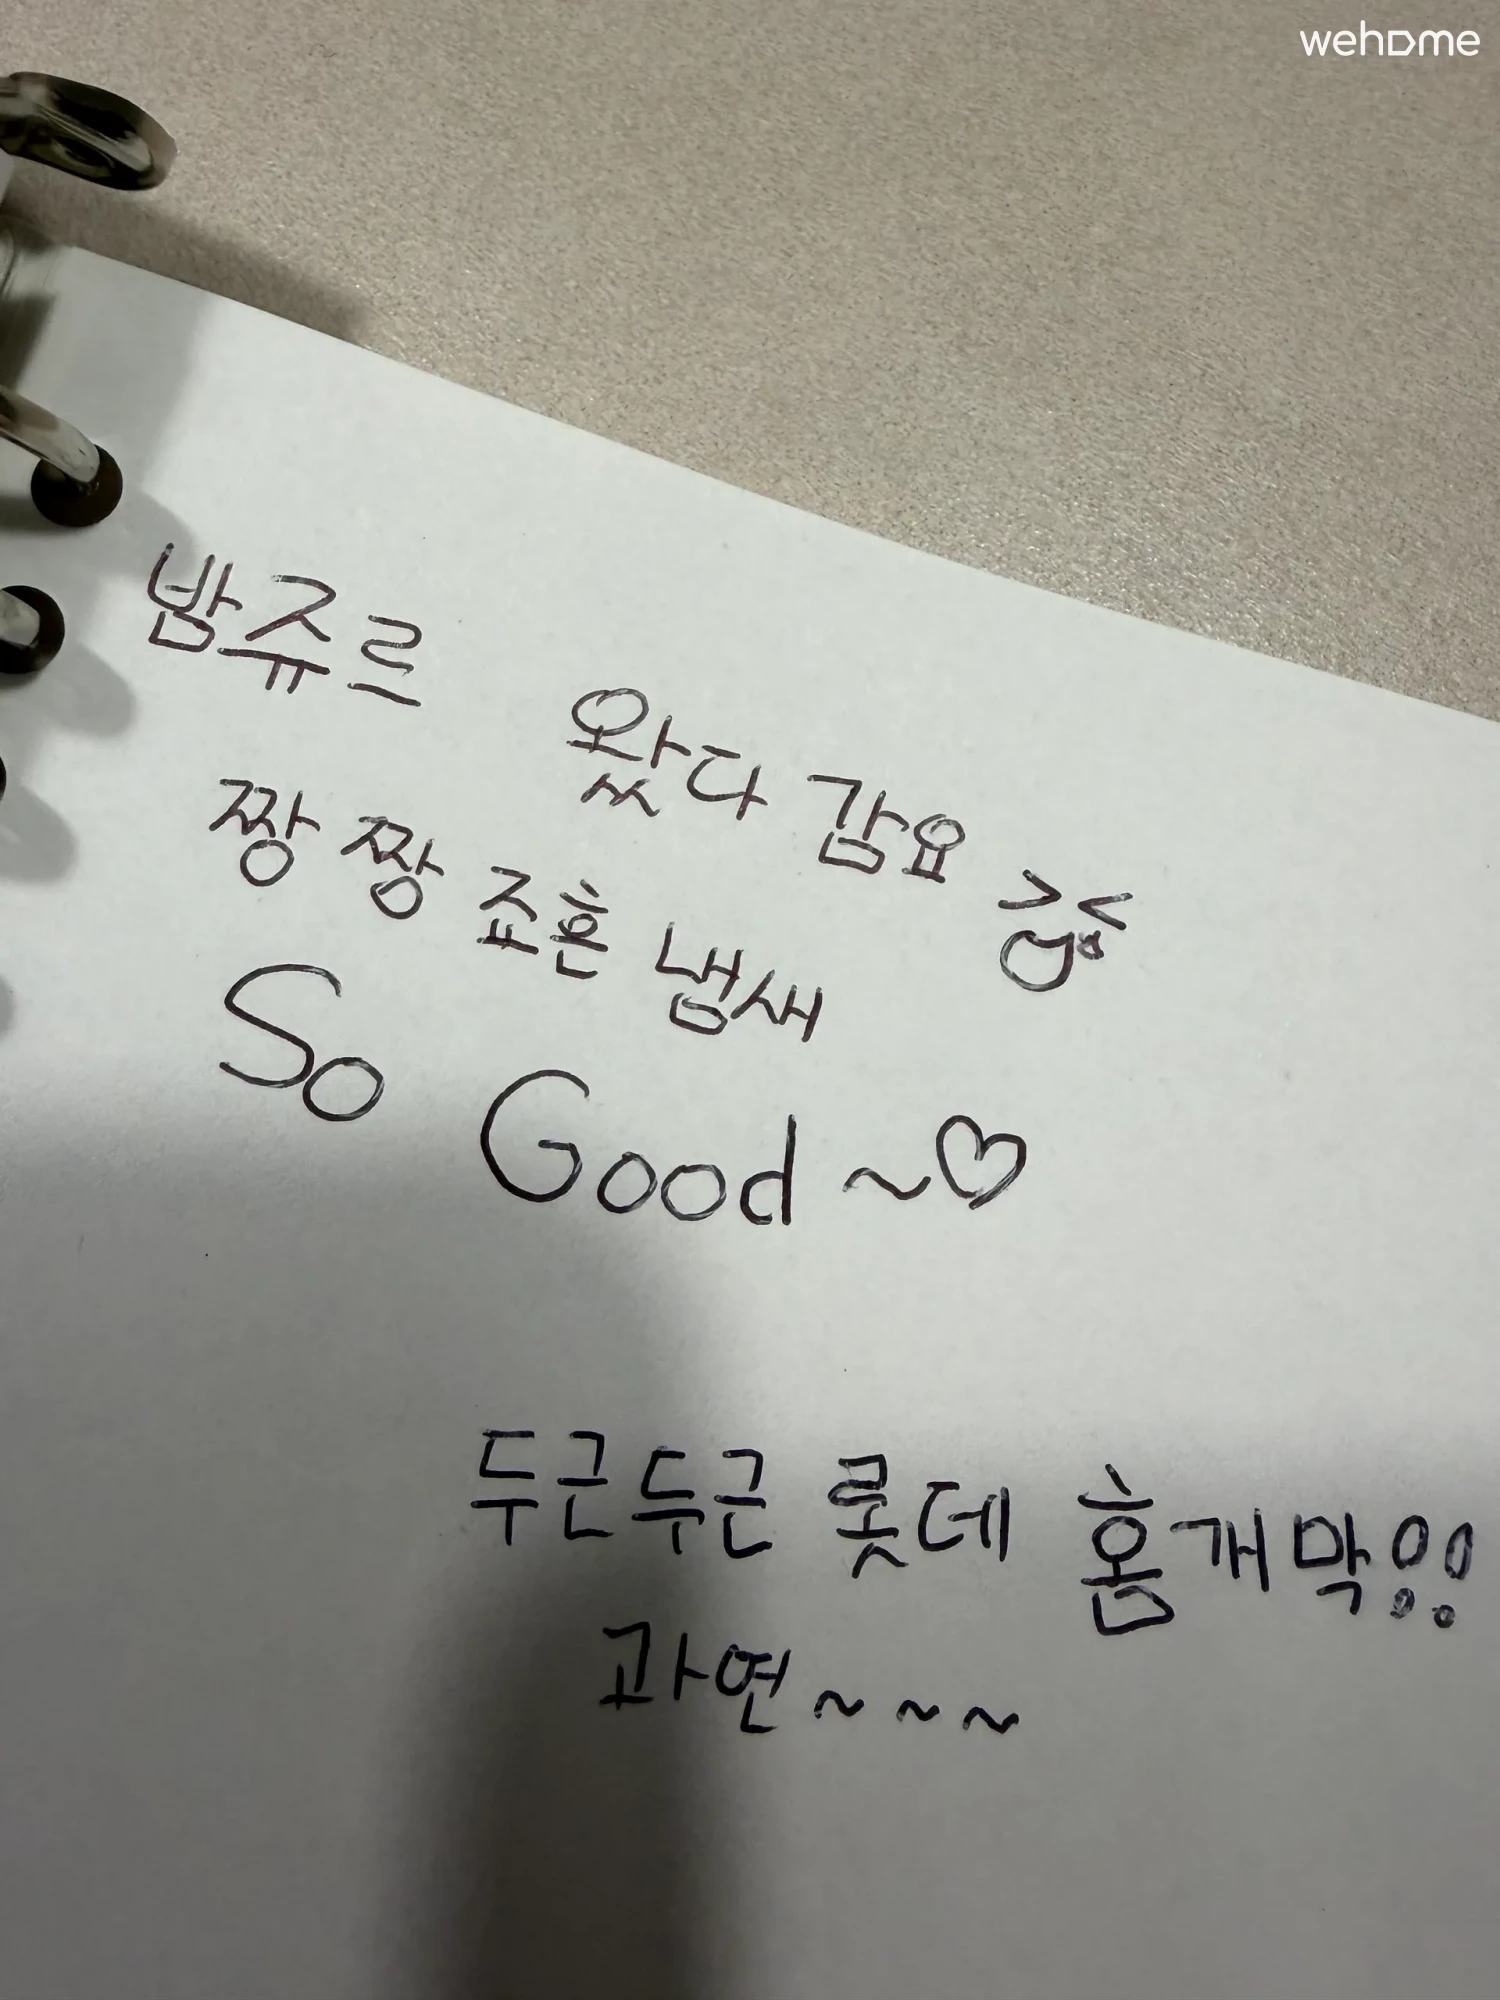 wehome
밤쥬르 왔다 감요 ><
짱 짱 조흔 냄새
So Good ~♡
두근두근 롯데 홈개막!!
과연~~~